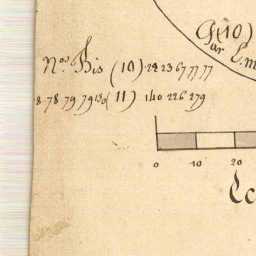 (10)
N.os Bis (10) 22 23 67 77 77
8 78 79 79 130 (11) 140 226 279
0 10 20